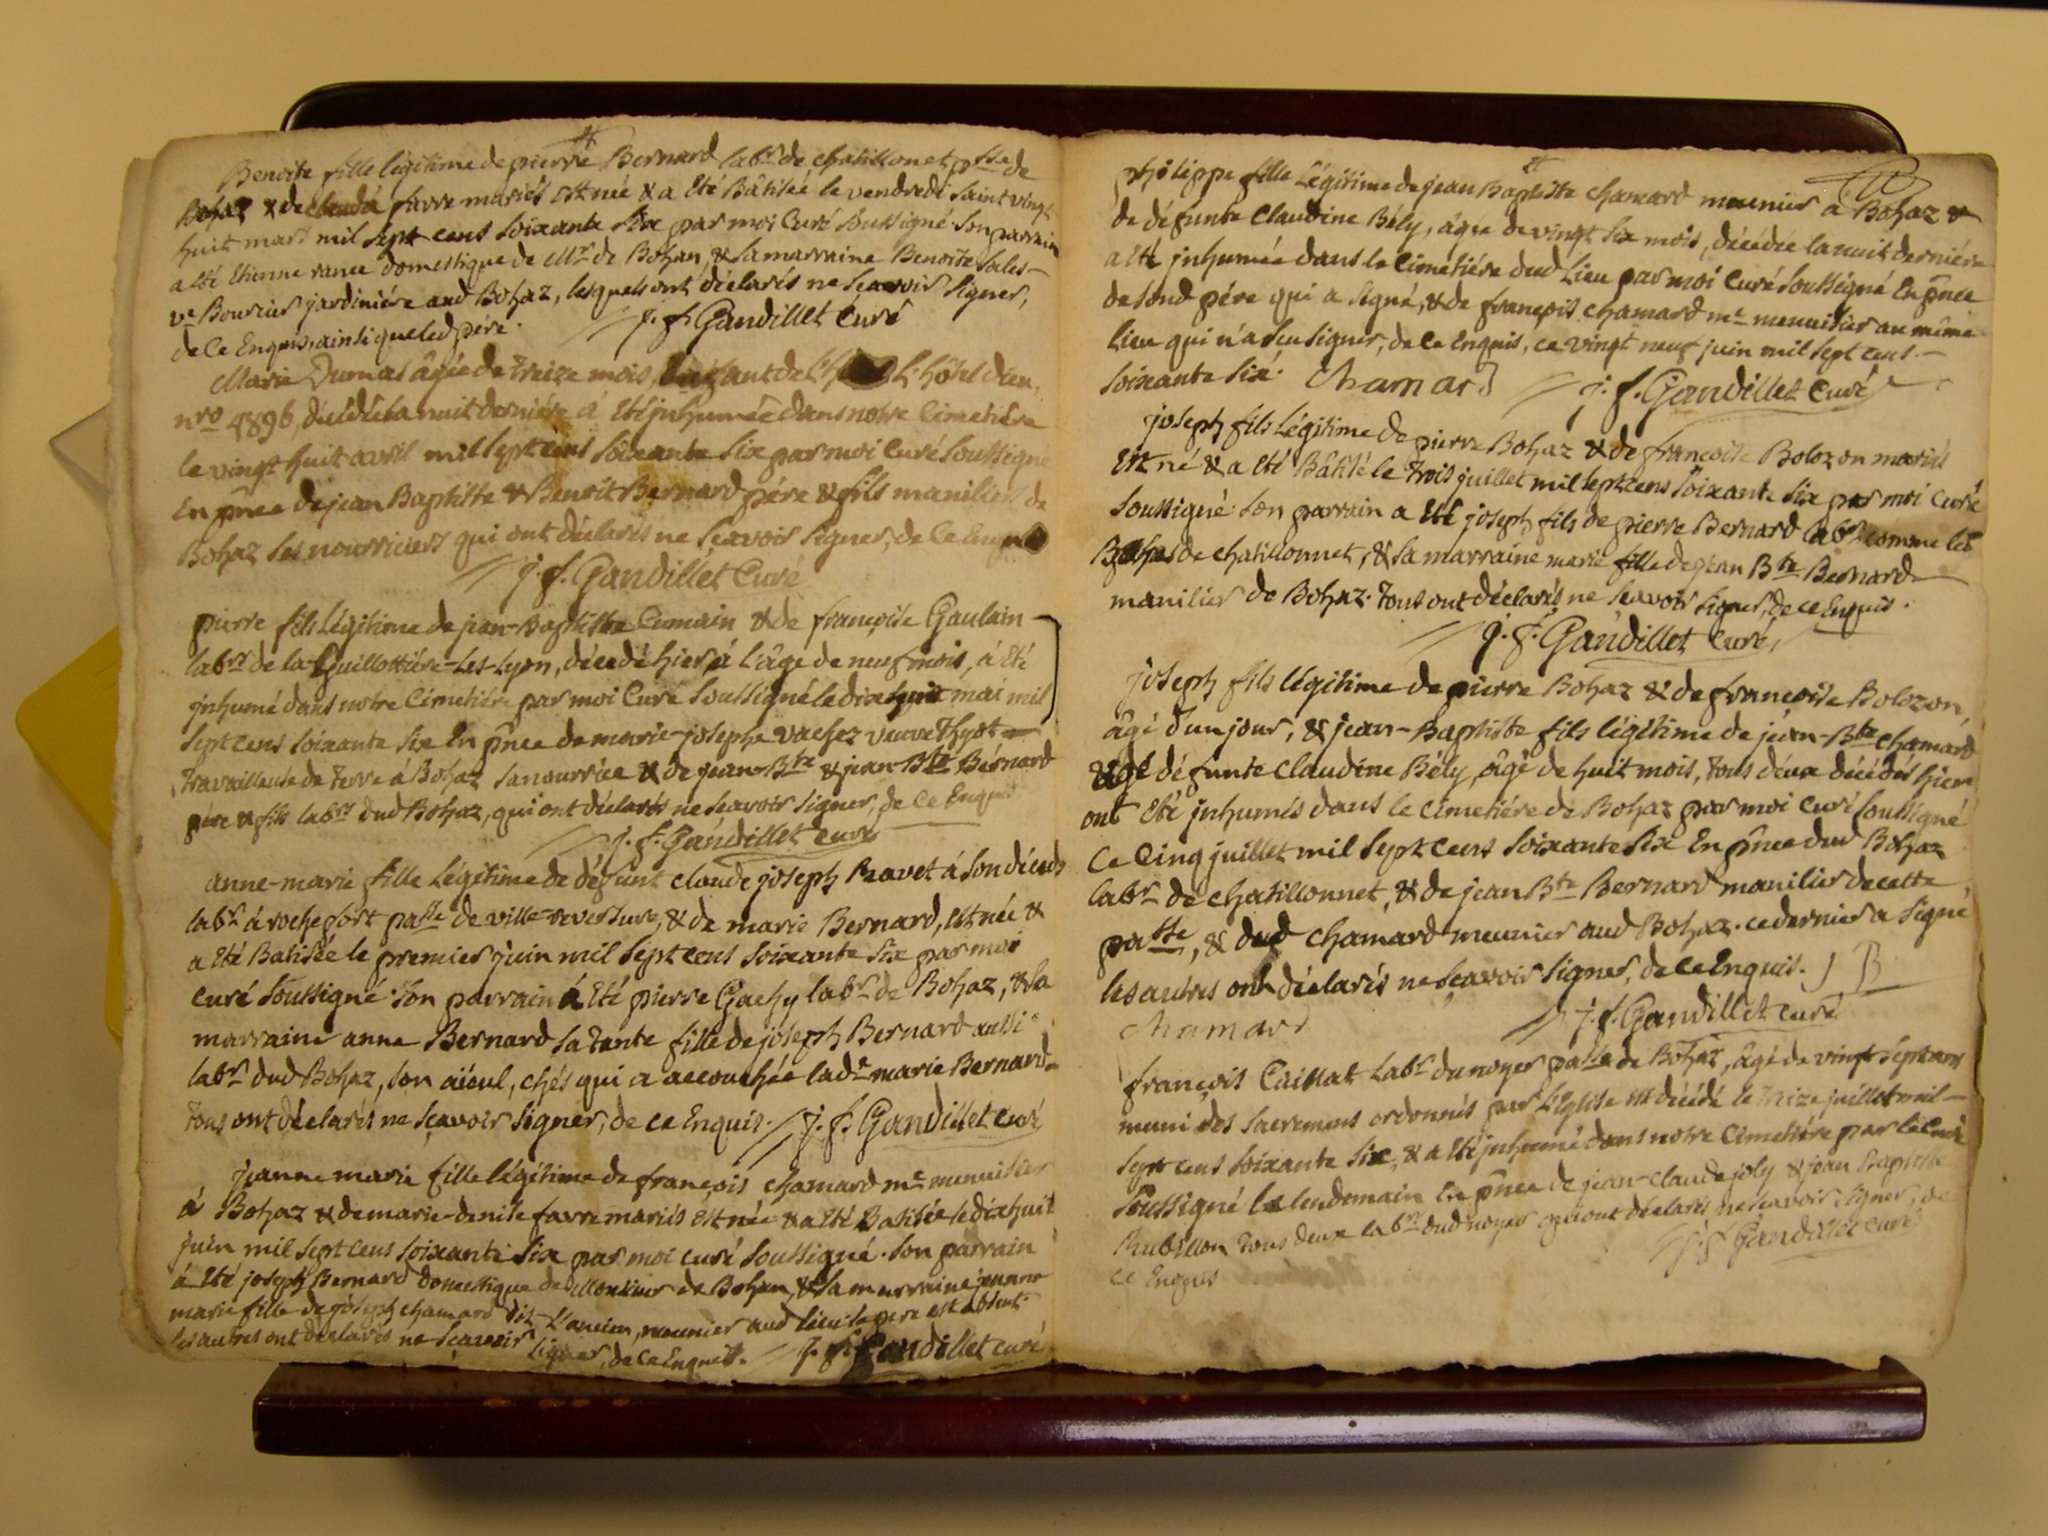 Benoite fille légitime de pierre Bernard labr de chatillonet psse de
Bohaz & de claudá favre mariés est née & a Eté Bâtisée le vendredi saint vingt
huit mars mil sept cens soixante six par moi Curé soussigné. son parrain
a été Etienne ranee domestique de Mr de Bohan, & sa marraine Benoite sales-
ve Bourcier jardiniére aud Bohaz, lesquels ont déclarés ne scavoir signer,
de Ce Enquis, ainsi que led pére. J. f. Gandillet Curé
Marie Dumas âgée de treize mois, Enfant de L'hôtel dieu,
nro 4896, décédée la nuit derniére á Eté jnhumée dans notre Cimetiére
le vingt huit avril mil sept cens soixante six par moi Curé soussigné
En pñce de jean Baptiste & Benoit Bernard pére & fils maniliers de
Bohaz ses nourriciers qui ont déclarés ne scavoir signer, de Ce Enquis
J. f. Gandillet Curé
pierre fils légitime de jean-Baptiste Cumain & de françoise Gaulain
labrs de la Guillottiére-Les-Lyon, décedé hier á l'âge de neuf mois, á Eté
jnhumé dans notre Cimetiére par moi Curé soussigné le dix huit mai mil
sept cens soixante six En pñce de marie-josephe vachez veuve Thyot
travailleuse de terre á Bohaz sa nourrice & de jean-Bte & jean Bte Bérnard
pére & fils labrs dud Bohaz, qui ont déclarés ne scavoir signer, de Ce Enquis
J. f. Gandillet Curé
anne-marie fille légitime de défunt claude joseph Ravet á son décéds
labr á rochefort psse de ville-reversure, & de marie Bernard, est née &
a Eté Batisée le premier juin mil sept cens soixante six par moi
curé soussigné. son parrain á Eté pierre Gachy labr de Bohaz, & sa
marraine anne Bernard sa tante fille de joseph Bernard aussi
labr dud Bohaz, son aïeul, chés qui a accouchée lade marie Bernard
tous ont déclarés ne sçavoir signer, de ce Enquis. J. f. Gandillet curé
jeanne marie fille légitime de françois chamard me menuisier
á Bohaz & de marie-denise favre mariés est née & a Eté Batisée le dix huit
juin mil sept cens soixante six par moi curé soussigné. son parrain
á Eté joseph Bernard domestique de Monsieur de Bohan, & sa marraine jeanne
marie fille de joseph chamard dit L'ancien, meunier aud lieu le pere est absent
les autres ont déclarés ne sçavoir signer, de Ce Enquis. J. f. Gandillet curé
philippe fille Légitime de jean Baptiste chamard meunier a Bohaz &
de défunte Claudine Bély, âgée de vingt six mois, décédée la nuit derniére
a été jnhumée dans le Cimetiére dud Lieu par moi Curé soussigné En pñce
de sond pére qui a signé, & de françois chamard me menuisier au même
lieu qui n'a sçu signer, de Ce Enquis, ce vingt neuf juin mil sept cens
soixante six. Chamard J. f. Gandillet Curé
joseph fils légitime de pierre Bohaz & de françoise Bolozon mariés
Est né & a Eté Bâtisé le trois juillet mil sept cens soixante six par moi Curé
soussigné. son parrain a Eté joseph fils de pierre Bernard labr comme led
Bohaz de chatillonnet, & sa marraine marie fille de jean Bte Bernard
manilier de Bohaz. tous ont déclarés ne scavoir signer, de ce Enquis.
J. f. Gandillet Curé
joseph fils légitime de pierre Bohaz & de françoise Bolozon
âgé d'un jour, & jean-Baptiste fils légitime de jean-Bte chamard
& de défunte Claudine Bély, âgé de huit mois, tous deux décédés hier
ont Eté jnhumés dans le cimetiére de Bohaz par moi curé soussigné
Ce Cinq juillet mil sept cens soixante six En pñce dud Bohaz
labr de chatillonnet, & de jean Bte Bernard manilier de cette
psse, & dud chamard meunier aud Bohaz. ce dernier a signé
les autres ont déclarés ne sçavoir signer, de Ce Enquis. J B
Chamard J. f. Gandillet curé
françois Caillat Labr du noyer psse de Bohaz, âgé de vingt sept ans
muni des sacremens ordonnés par L'Eglise est décédé le treize juillet mil
sept cens soixante six, & a Eté jnhumé dans notre Cimetiére par le curé
soussigné le lendemain En pñce de jean-claude joly & jean Baptiste
Rubillon tous deux labrs dud noyer qui ont déclarés ne scavoir signer, de
ce Enquis J. f. Gandillet Curé